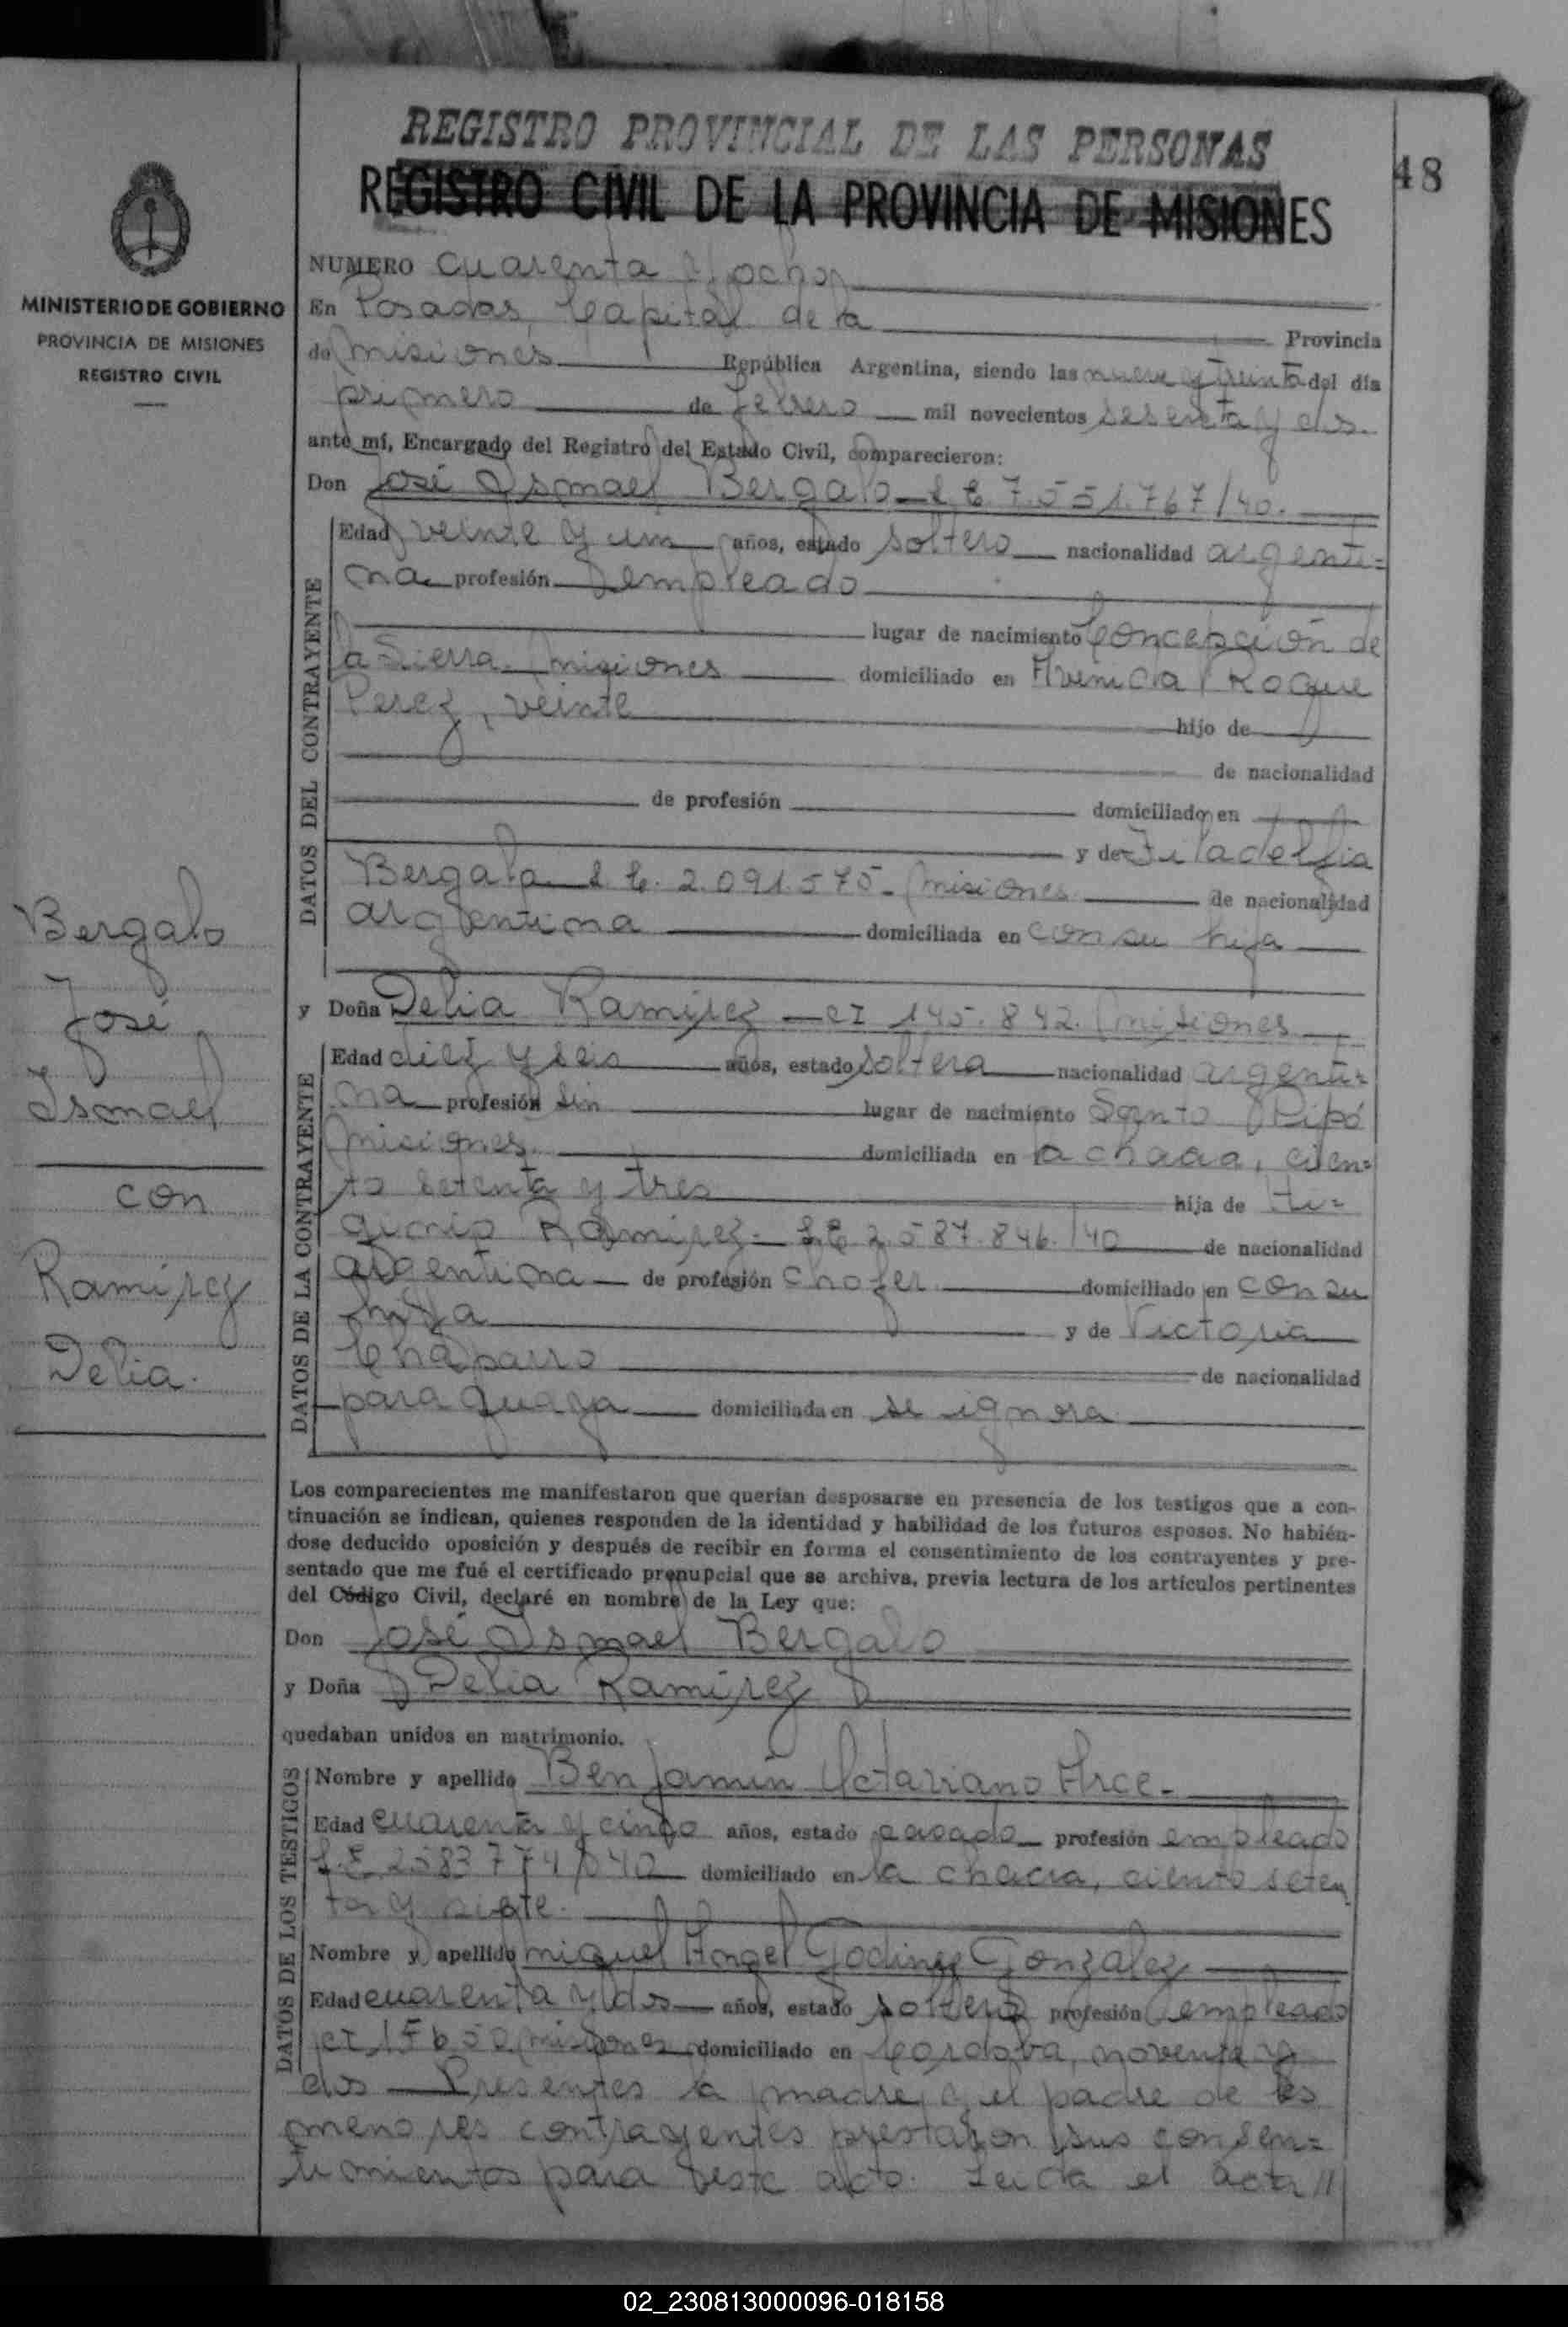 REGISTRO PROVINCIAL DE LAS PERSONAS
REGISTRO CIVIL DE LA PROVINCIA DE MISIONES
48
MINISTERIO DE GOBIERNO
PROVINCIA DE MISIONES
REGISTRO CIVIL
Bergalo
José
Ismael
con
Ramirez
Delia.
NUMERO cuarenta y ocho
En Posadas, Capital de la Provincia
de Misiones República Argentina, siendo las nueve y treinta del día
primero de febrero mil novecientos sesenta y dos.
ante mí, Encargado del Registro del Estado Civil, comparecieron:
Don José Ismael Bergalo L E 7.551.767/40.
DATOS DEL CONTRAYENTE
Edad veinte y un años, estado soltero nacionalidad argenti=
na profesión empleado
lugar de nacimiento Concepción de
la Sierra. Misiones domiciliado en Avenida Roque
Perez, veinte hijo de
de nacionalidad
de profesión domiciliado en
y de Filadelfia
Bergalo L C. 2.091.575- Misiones de nacionalidad
argentina domiciliada en con su hija
y Doña Delia Ramirez CI 145.842. Misiones
DATOS DE LA CONTRAYENTE
Edad diez y seis años, estado soltera nacionalidad argenti=
na profesión sin lugar de nacimiento Santo Pipó
Misiones. domiciliada en la chacra, cien=
to setenta y tres hija de
Ramirez L E 2.587.846./40 de nacionalidad
argentina de profesión chofer domiciliado en con su
hija y de Victoria
Chaparro de nacionalidad
paraguaya domiciliada en se ignora
Los comparecientes me manifestaron que querían desposarse en presencia de los testigos que a con-
tinuación se indican, quienes responden de la identidad y habilidad de los futuros esposos. No habién-
dose deducido oposición y después de recibir en forma el consentimiento de los contrayentes y pre-
sentado que me fué el certificado prenupcial que se archiva, previa lectura de los artículos pertinentes
del Código Civil, declaré en nombre de la Ley que:
Don José Ismael Bergalo
y Doña Delia Ramirez
quedaban unidos en matrimonio.
DATOS DE LOS TESTIGOS
Nombre y apellido Benjamin Octaviano Arce-
Edad cuarenta y cinco años, estado casado profesión empleado
L.E 2583774/040 domiciliado en la chacra, ciento seten
ta y siete.
Nombre y apellido Miguel Angel Godinez Gonzalez
Edad cuarenta y dos años, estado soltero profesión empleado
CI Misiones domiciliado en Cordoba, noventa y
dos Presentes la madre y el padre de los
menores contrayentes prestaron sus consen=
timientos para este acto. Leida el acta //
02_230813000096-018158